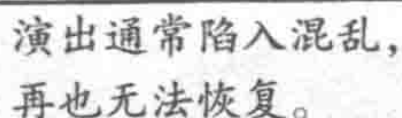 演出通常陷入混乱，
再也无法恢复。